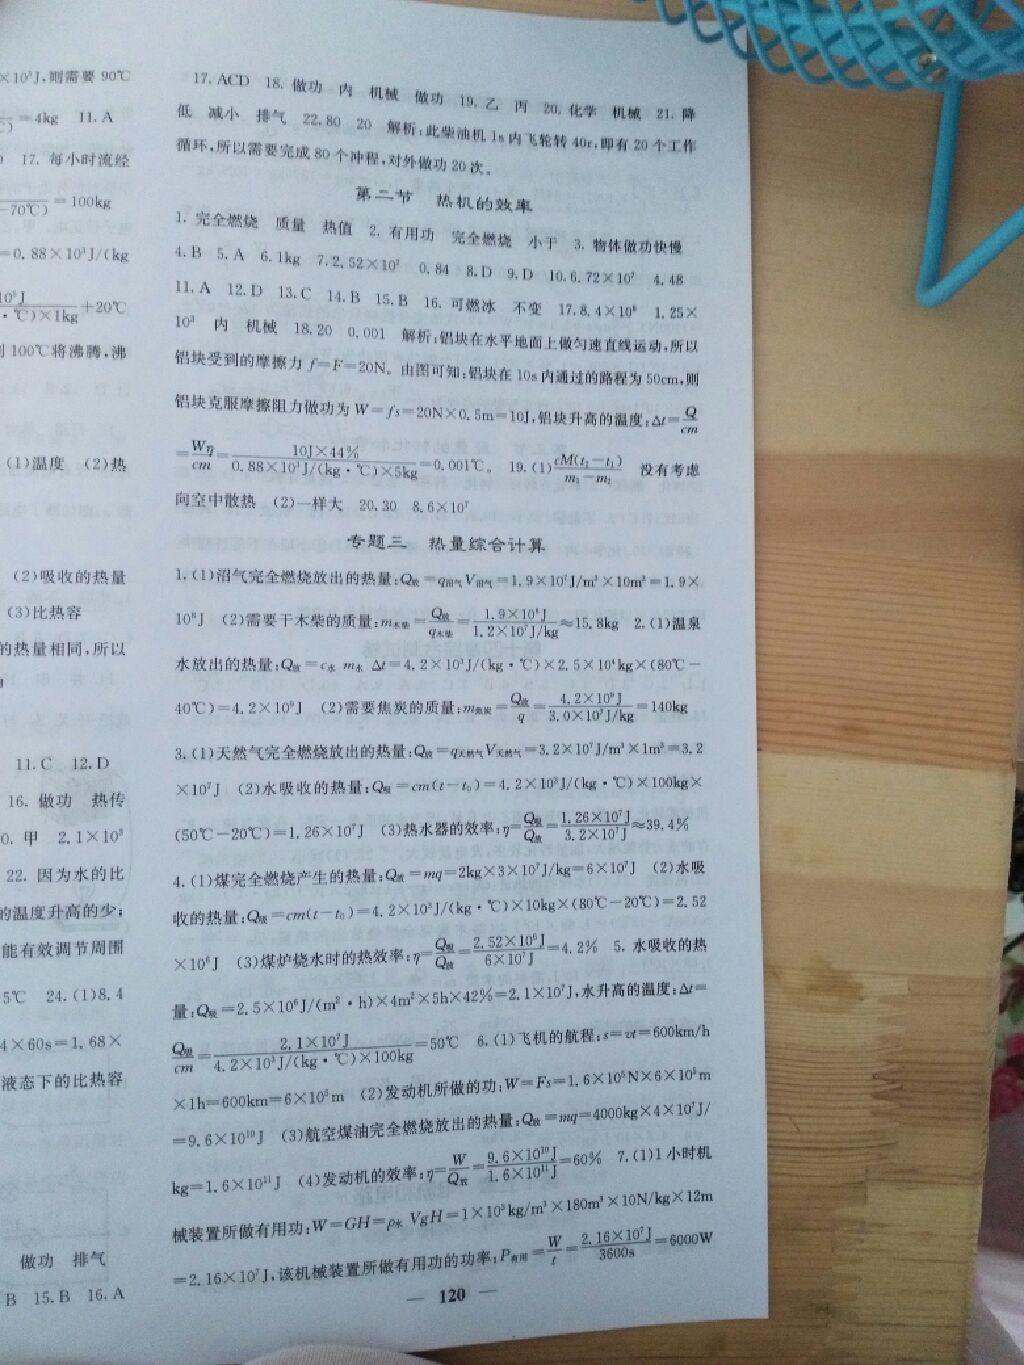 ×10⁵J,则需要 90℃
=4kg 11. A
17. 每小时流经
-70℃) =100kg
=0.88×10³J/(kg
·℃)×1kg +20℃
100℃将沸腾,沸
(1)温度 (2)热
(2)吸收的热量
(3)比热容
的热量相同,所以
11. C 12. D
16. 做功 热传
0. 甲 2.1×10³
22. 因为水的比
的温度升高的少;
能有效调节周围
5℃ 24. (1)8.4
4×60s=1.68×
液态下的比热容
做功 排气
B 15. B 16. A
17. ACD 18. 做功 内 机械 做功 19. 乙 丙 20. 化学 机械 21. 降
低 减小 排气 22. 80 20 解析:此柴油机 1s 内飞轮转 40r,即有 20 个工作
循环,所以需要完成 80 个冲程,对外做功 20 次。
第二节 热机的效率
1. 完全燃烧 质量 热值 2. 有用功 完全燃烧 小于 3. 物体做功快慢
4. B 5. A 6. 1kg 7. 2.52×10⁷ 0.84 8. D 9. D 10. 6.72×10⁷ 4.48
11. A 12. D 13. C 14. B 15. B 16. 可燃冰 不变 17. 8.4×10⁶ 1.25×
10³ 内 机械 18. 20 0.001 解析:铝块在水平地面上做匀速直线运动,所以
铝块受到的摩擦力 f=F=20N。由图可知:铝块在 10s 内通过的路程为 50cm,则
铝块克服摩擦阻力做功为 W=fs=20N×0.5m=10J,铝块升高的温度:Δt=Q/cm
=Wη/cm=10J×44%/0.88×10³J/(kg·℃)×5kg=0.001℃。 19. (1)cM(t₂-t₁)/m₁-m₂ 没有考虑
向空中散热 (2)一样大 20. 30 8.6×10⁷
专题三 热量综合计算
1. (1)沼气完全燃烧放出的热量:Q放=q沼气V沼气=1.9×10⁷J/m³×10m³=1.9×
10⁸J (2)需要干木柴的质量:m木柴=Q放/q木柴=1.9×10⁸J/1.2×10⁷J/kg≈15.8kg 2. (1)温泉
水放出的热量:Q放=c水 m水 Δt=4.2×10³J/(kg·℃)×2.5×10⁴kg×(80℃-
40℃)=4.2×10⁹J (2)需要焦炭的质量:m焦炭=Q放/q=4.2×10⁹J/3.0×10⁷J/kg=140kg
3. (1)天然气完全燃烧放出的热量:Q放=q天然气V天然气=3.2×10⁷J/m³×1m³=3.2
×10⁷J (2)水吸收的热量:Q吸=cm(t-t₀)=4.2×10³J/(kg·℃)×100kg×
(50℃-20℃)=1.26×10⁷J (3)热水器的效率:η=Q吸/Q放=1.26×10⁷J/3.2×10⁷J≈39.4%
4. (1)煤完全燃烧产生的热量:Q放=mq=2kg×3×10⁷J/kg=6×10⁷J (2)水吸
收的热量:Q吸=cm(t-t₀)=4.2×10³J/(kg·℃)×10kg×(80℃-20℃)=2.52
×10⁶J (3)煤炉烧水时的热效率:η=Q吸/Q放=2.52×10⁶J/6×10⁷J=4.2% 5. 水吸收的热
量:Q吸=2.5×10⁶J/(m²·h)×4m²×5h×42%=2.1×10⁷J,水升高的温度:Δt=
Q吸/cm=2.1×10⁷J/4.2×10³J/(kg·℃)×100kg=50℃ 6. (1)飞机的航程:s=vt=600km/h
×1h=600km=6×10⁵m (2)发动机所做的功:W=Fs=1.6×10⁵N×6×10⁵m
=9.6×10¹⁰J (3)航空煤油完全燃烧放出的热量:Q放=mq=4000kg×4×10⁷J/
kg=1.6×10¹¹J (4)发动机的效率:η=W/Q放=9.6×10¹⁰J/1.6×10¹¹J=60% 7. (1)1 小时机
械装置所做有用功:W=GH=ρ水VgH=1×10³kg/m³×180m³×10N/kg×12m
=2.16×10⁷J,该机械装置所做有用功的功率:P有用=W/t=2.16×10⁷J/3600s=6000W
— 120 —